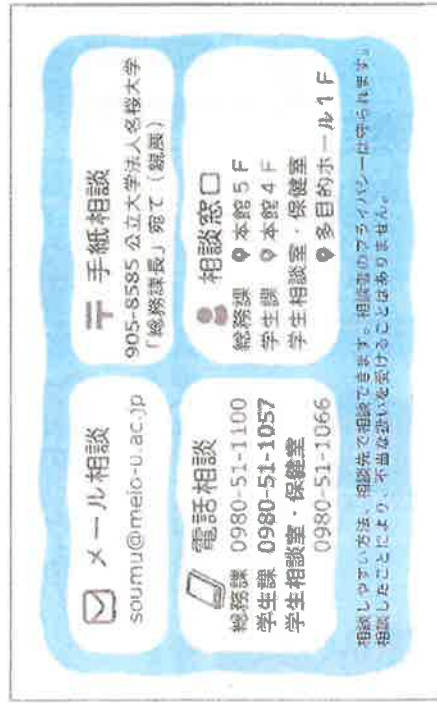 メール相談
soumu@meio-u.ac.jp
〒 手紙相談
905-8585 公立大学法人名桜大学
「総務課長」宛て（親展）
電話相談
総務課 0980-51-1100
学生課 0980-51-1057
学生相談室・保健室
0980-51-1066
相談窓口
総務課 本館5F
学生課 本館4F
学生相談室・保健室
多目的ホール1F
相談しやすい方法、相談先で相談できます。相談者のプライバシーは守られます。
相談したことにより、不当な扱いを受けることはありません。